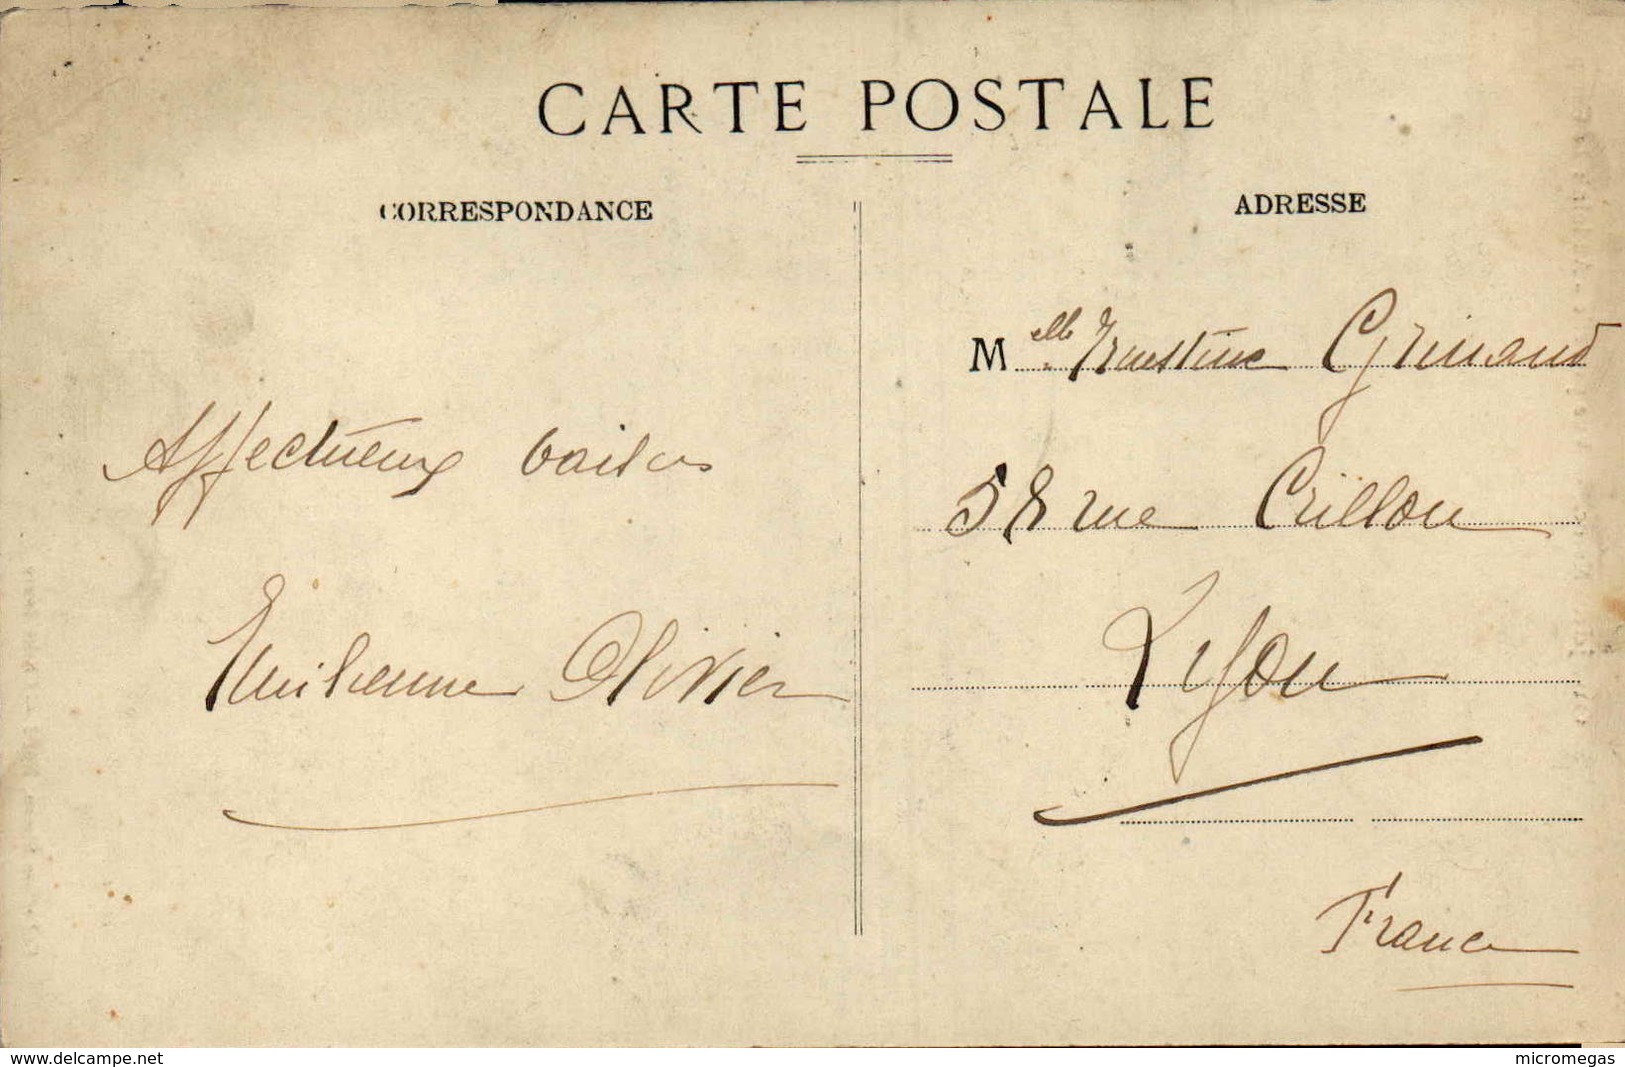 CARTE POSTALE
CORRESPONDANCE
ADRESSE
Melle Ernestine Grimand
58 rue Crillon
Lyon
France
Affectueux baisers
Emilienne Olivier
www.delcampe.net
micromegas